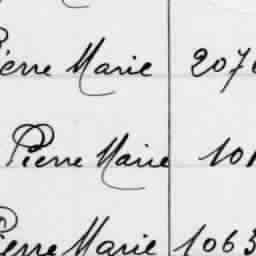 Pierre Marie 207
Pierre Marie 101
Pierre Marie 1063